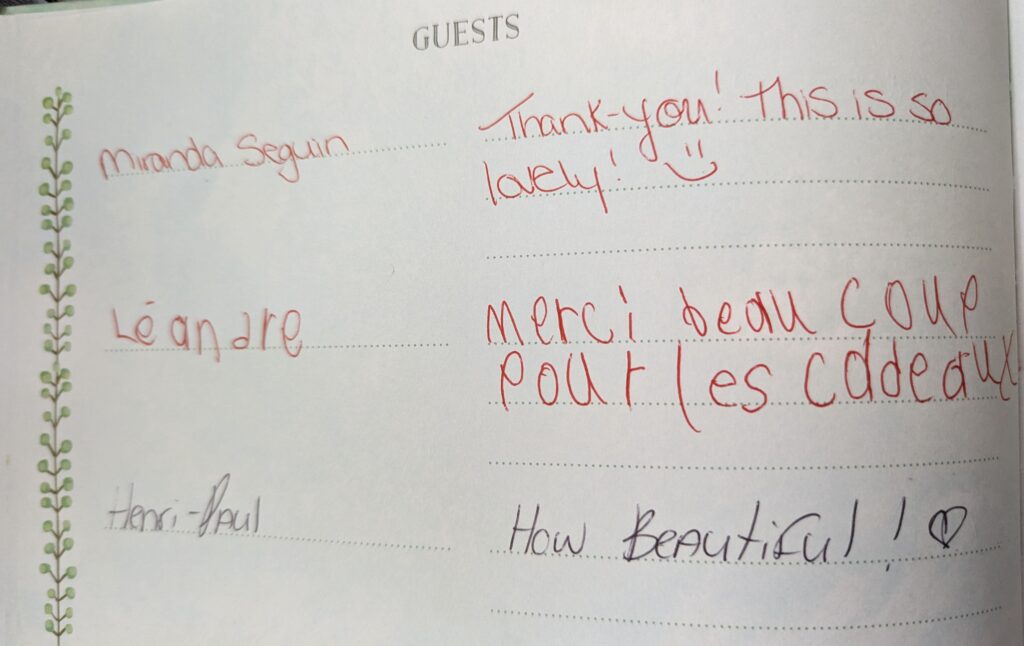 GUESTS
Miranda Seguin
Thank-you! This is so
lovely!
Léandre
merci beau coup
pour les cadeaux
Henri-Paul
How Beautiful!